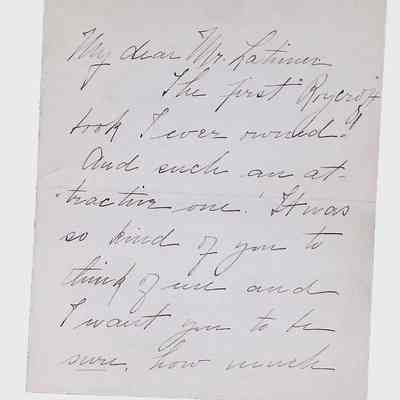 My dear Mr. Latimer
The first "Roycroft
book I ever owned!
And such an at-
tractive one! It was
so kind of you to
think of me and
I want you to be
sure, how much